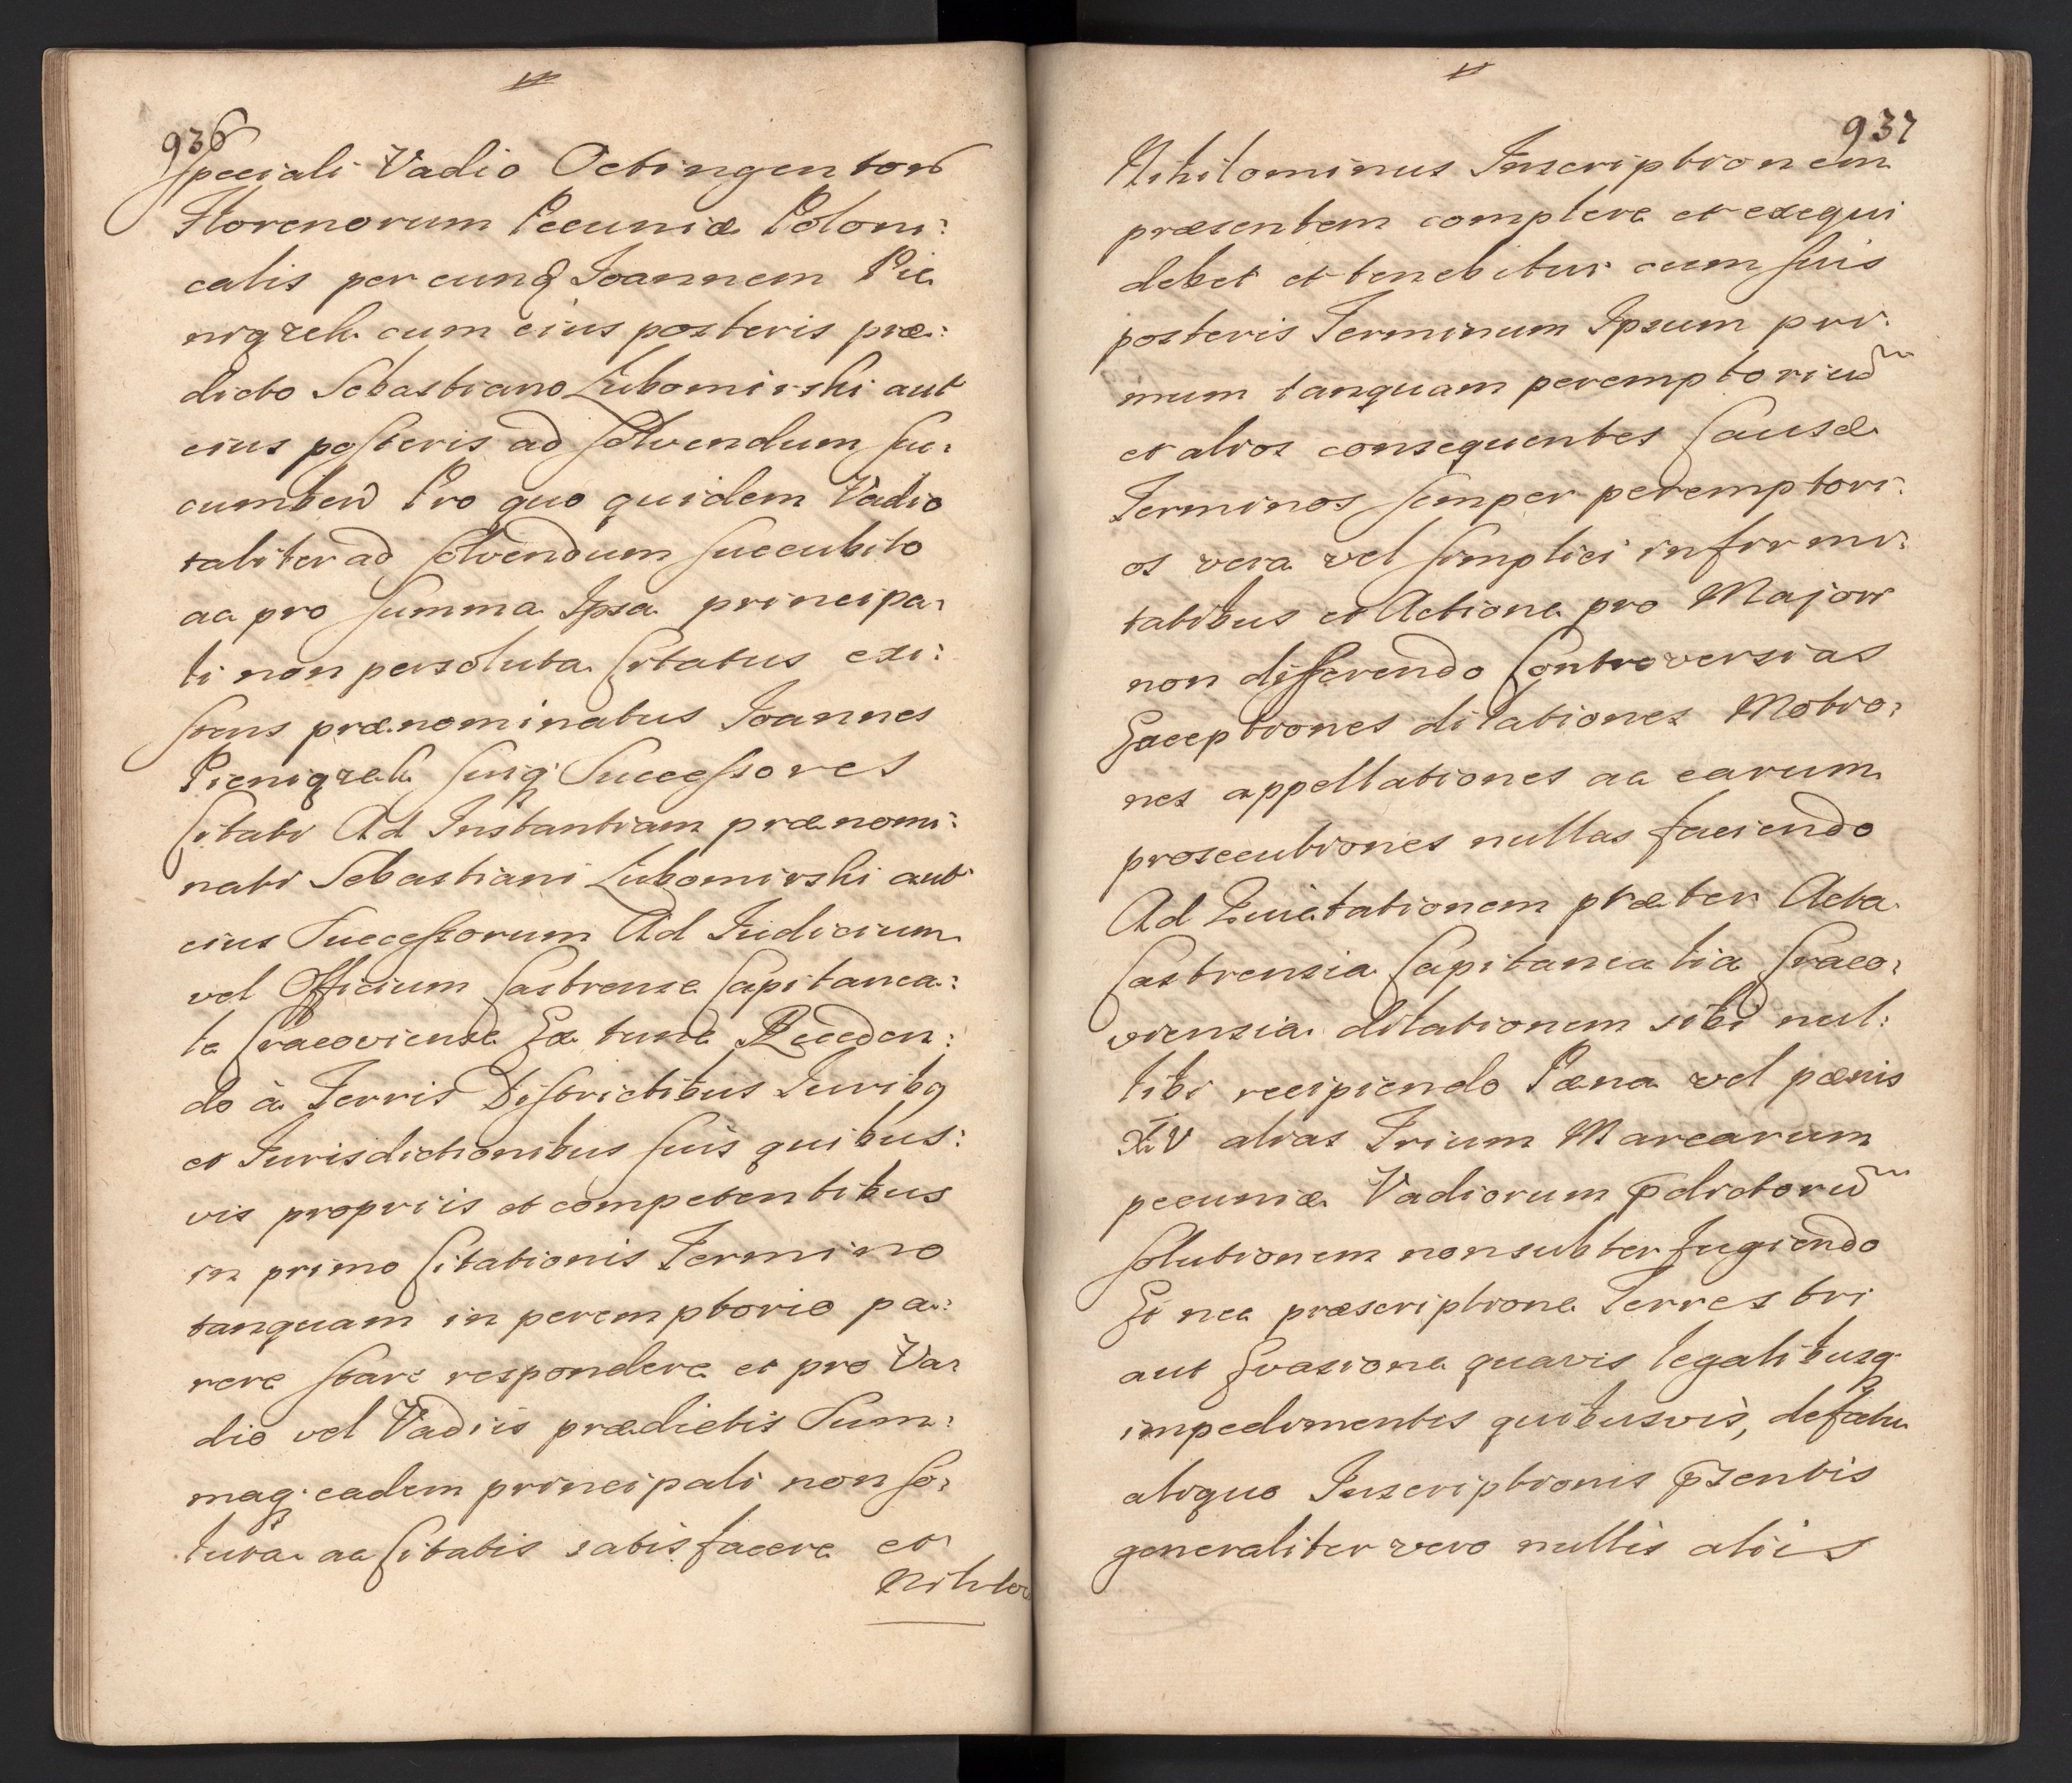 936
Speciali Vadio Octingentorũ
Florenorum Pecuniæ Poloni:
calis per eunđ Joannem Pie
niązek cum eius posteris præ:
dicto Sebastiano Lubomirski aut
eius posteris ad solvendum suc:
cumbenđ Pro quo quidem Vadio
taliter ad solvendum succubito
ac pro summa Ipsa principa:
li non persoluta Citatus exi:
stens prænominatus Joannes
Pieniązek suiq Successores
Citati Ad Instantiam prænomi:
nati Sebastiani Lubomirski aut
eius Successorum Ad Iudicium
vel Officium Castrense Capitanea:
le Cracoviense Ex tunc Receden:
do à Terris Districtibus Iuribq
et Iurisdictionibus suis quibus:
vis propriis et competentibus
in primo Citationis Termino
tanquam in peremptorio pa:
rere stare respondere et pro Va:
dio vel Vadiis prædictis Sum:
maq eadem principali non so:
luta ac Citatis satisfacere et
Nihilo
937
Nihilominus Inscriptionem
præsentem complere et exequi
debet et tenebitur cum suis
posteris Terminum Ipsum pri:
mum tanquam peremptoriũ
et alios consequentes Causæ
Terminos semper peremptori:
os vera vel simplici infirmi:
tatibus et Actione pro Majori
non differendo Controversias
Exceptiones dilationes Motio:
nes appellationes ac earum
prosecutiones nullas faciendo
Ad Quietationem præter Acta
Castrensia Capitanealia Craco:
viensia dilationem sibi nul:
libi recipiendo Pæna vel pænis
XV alias Trium Marcarum
pecuniæ Vadiorum p̃dictorũ
solutionem non subterfugiendo
Et nec præscriptione Terrestri
aut Evasione quavis legalibusq
impedimentis quibusvis, defectu
aliquo Inscriptionis p̃sentis
generaliter vero nullis aliis